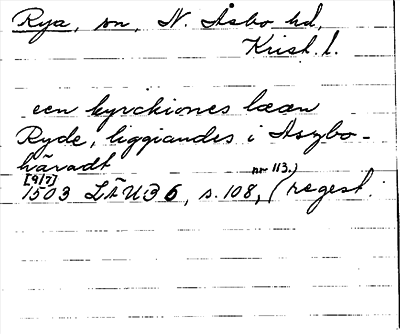 Rya, sn, N. Åsbo hd,
Krist. l.
een kyrckiones læen
Ryde, liggiandes i Aszbo-
häradt
[9/7] nr 113.)
1503 LÄU3 6, s. 108, (regest.